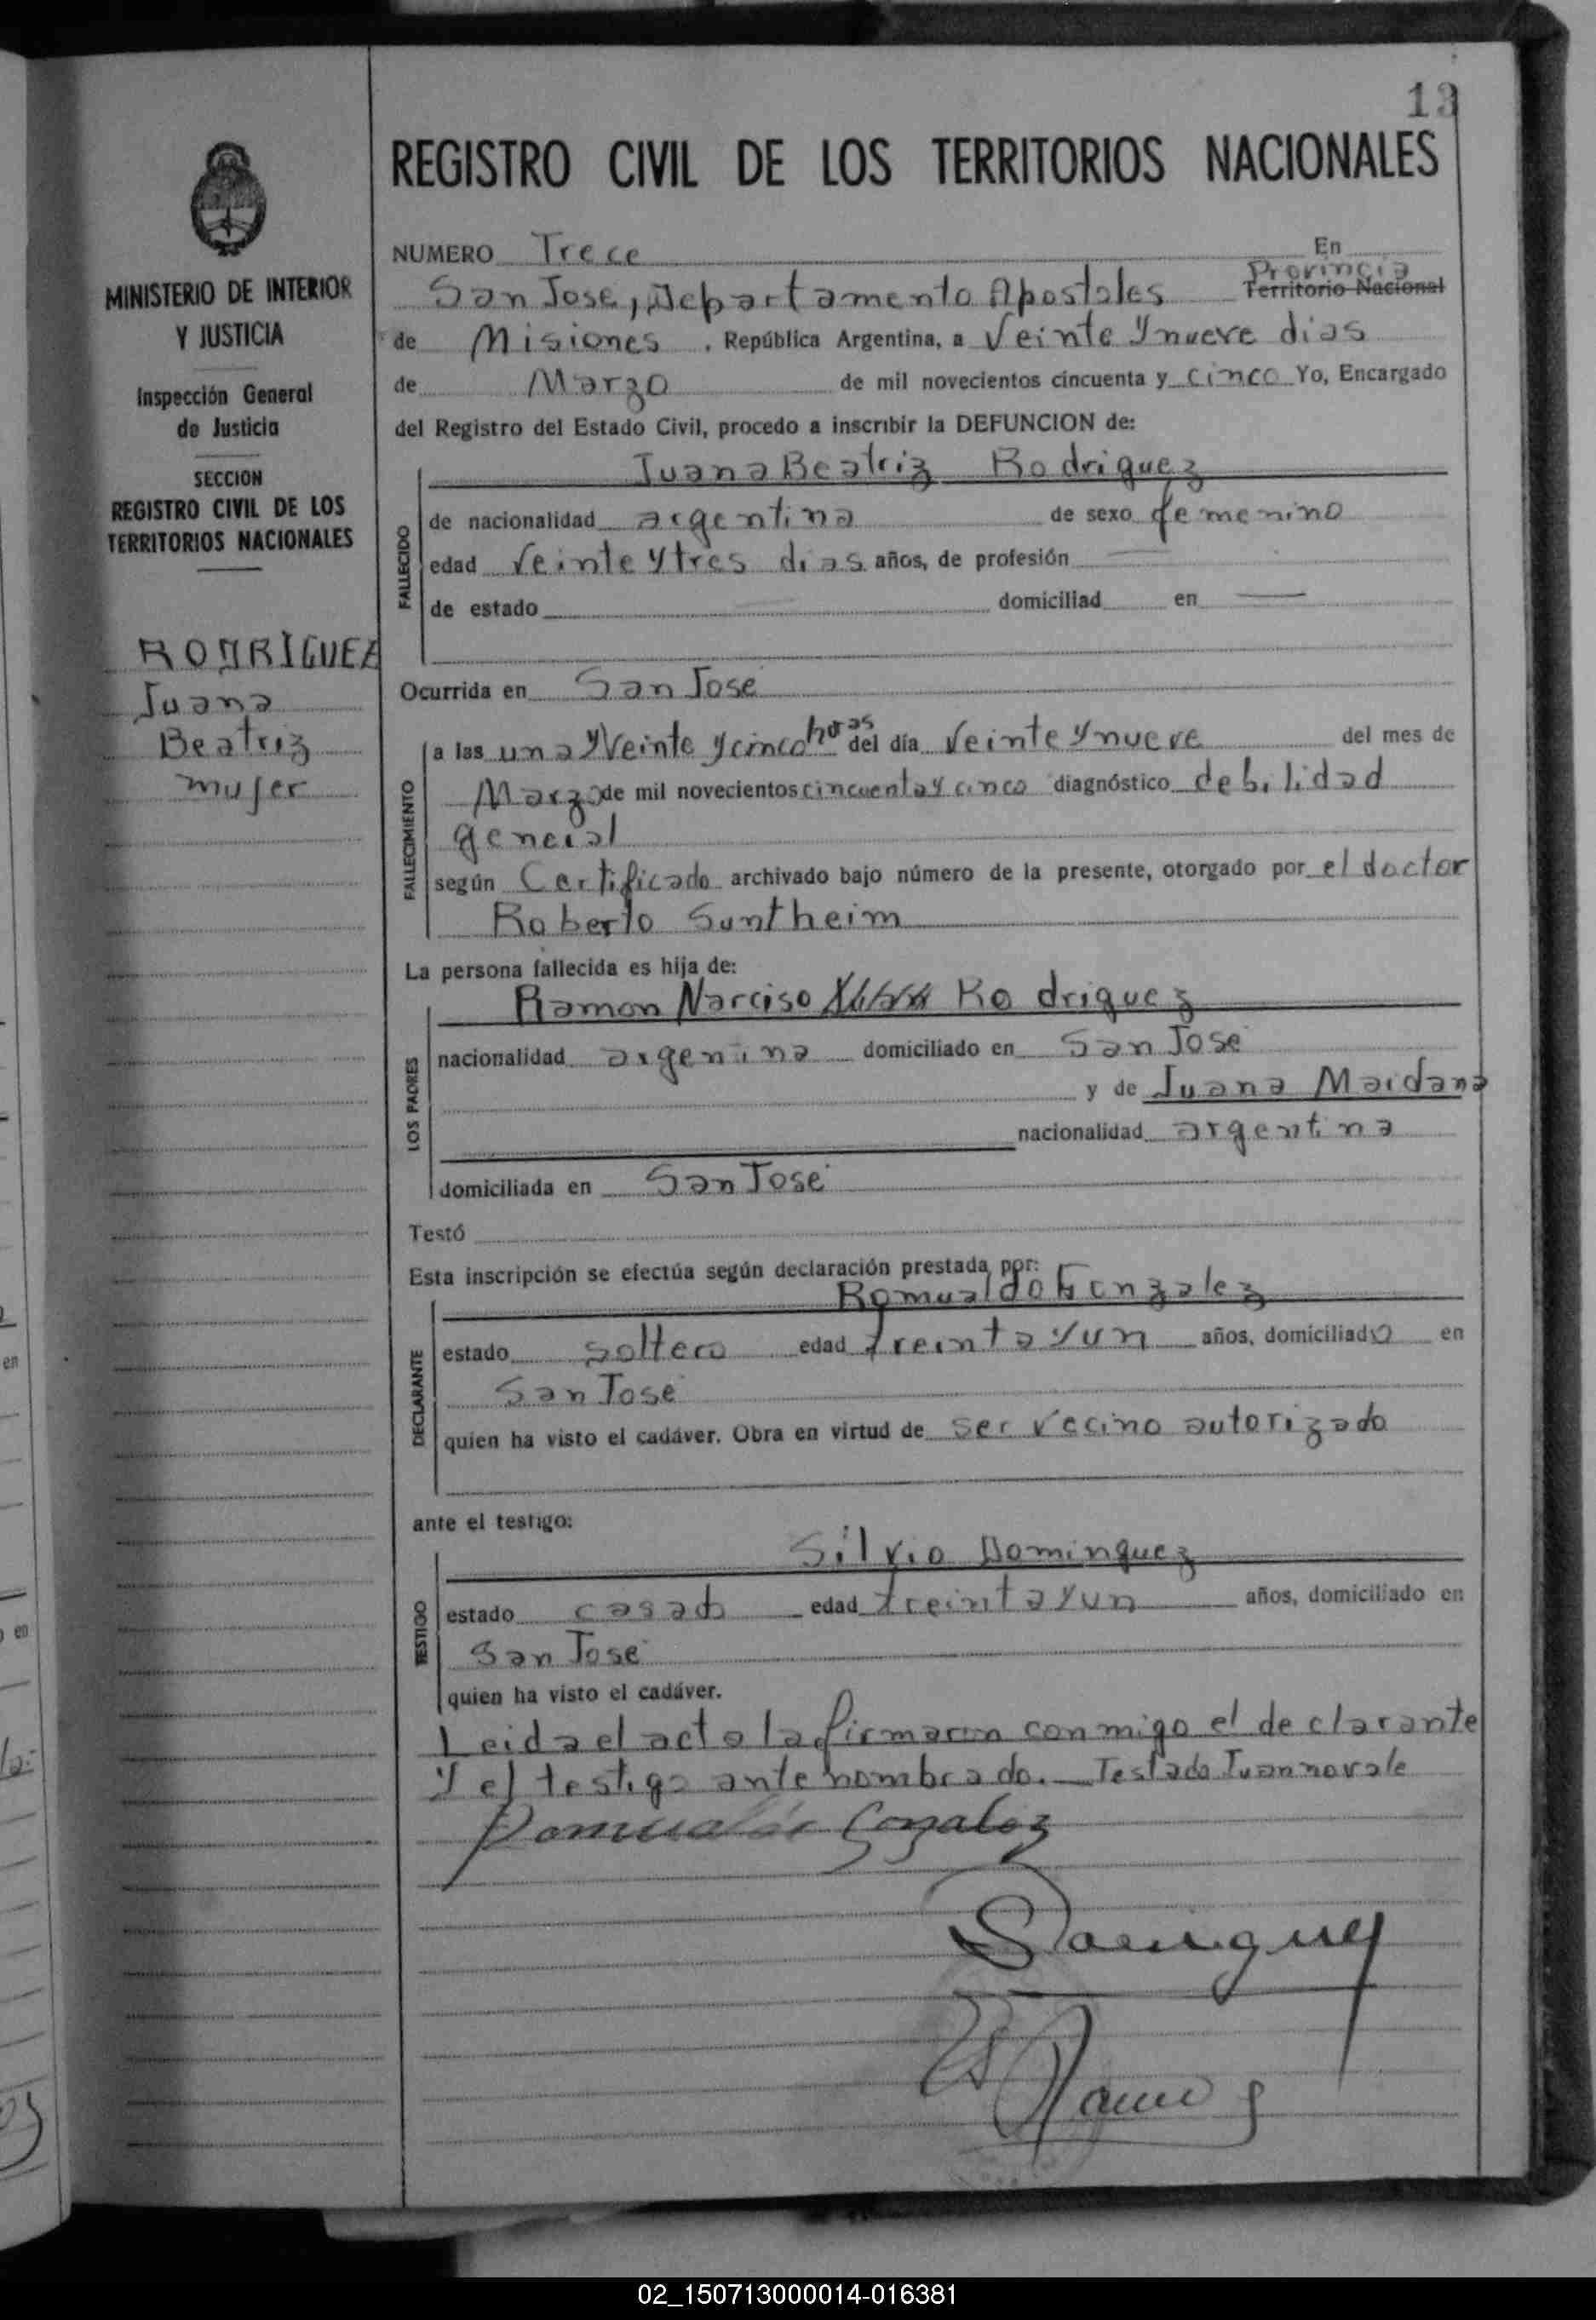 13
REGISTRO CIVIL DE LOS TERRITORIOS NACIONALES
MINISTERIO DE INTERIOR
Y JUSTICIA
Inspección General
de Justicia
SECCION
REGISTRO CIVIL DE LOS
TERRITORIOS NACIONALES
RODRIGUEZ
Juana
Beatriz
mujer
NUMERO Trece En
San Jose, Departamento Apostoles Provincia Territorio Nacional
de Misiones, República Argentina, a Veinte y nueve dias
de Marzo de mil novecientos cincuenta y cinco Yo, Encargado
del Registro del Estado Civil, procedo a inscribir la DEFUNCION de:
Juana Beatriz Rodriguez
FALLECIDO
de nacionalidad argentina de sexo femenino
edad Veinte y tres dias años, de profesión —
de estado — domiciliad en —
Ocurrida en San Jose
FALLECIMIENTO
a las una y Veinte y cinco horas del día Veinte y nueve del mes de
Marzo de mil novecientos cincuenta y cinco diagnóstico debilidad
general
según Certificado archivado bajo número de la presente, otorgado por el doctor
Roberto Suntheim
La persona fallecida es hija de:
Ramon Narciso Rodriguez
LOS PADRES
nacionalidad argenina domiciliado en San Jose
y de Juana Maidana
nacionalidad argentina
domiciliada en San Jose
Testó
Esta inscripción se efectúa según declaración prestada por:
Romualdo Gonzalez
DECLARANTE
estado soltero edad treinta y un años, domiciliado en
San Jose
quien ha visto el cadáver. Obra en virtud de ser vecino autorizado
ante el testigo:
Silvio Dominguez
TESTIGO
estado casado edad treinta y un años, domiciliado en
San Jose
quien ha visto el cadáver.
Leida el acta la firmaron conmigo el declarante
Y el testigo ante nombrado. — Testado Juan no vale
Romualdo Gonzalez
02_150713000014-016381